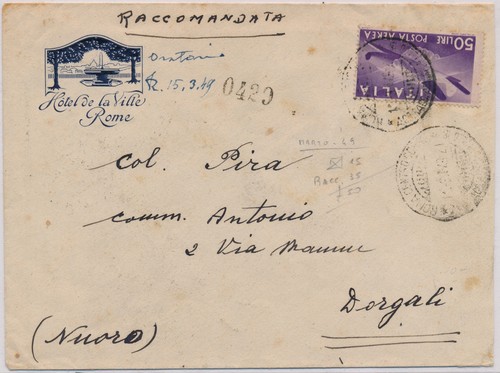 RACCOMANDATA
R. 15.3.49
0420
Hôtel de la Ville
Rome
50 LIRE POSTA AEREA
ITALIA
15
Racc. 35
50
Col. Pira
comm. Antonio
2 Via
Dorgali
(Nuoro)